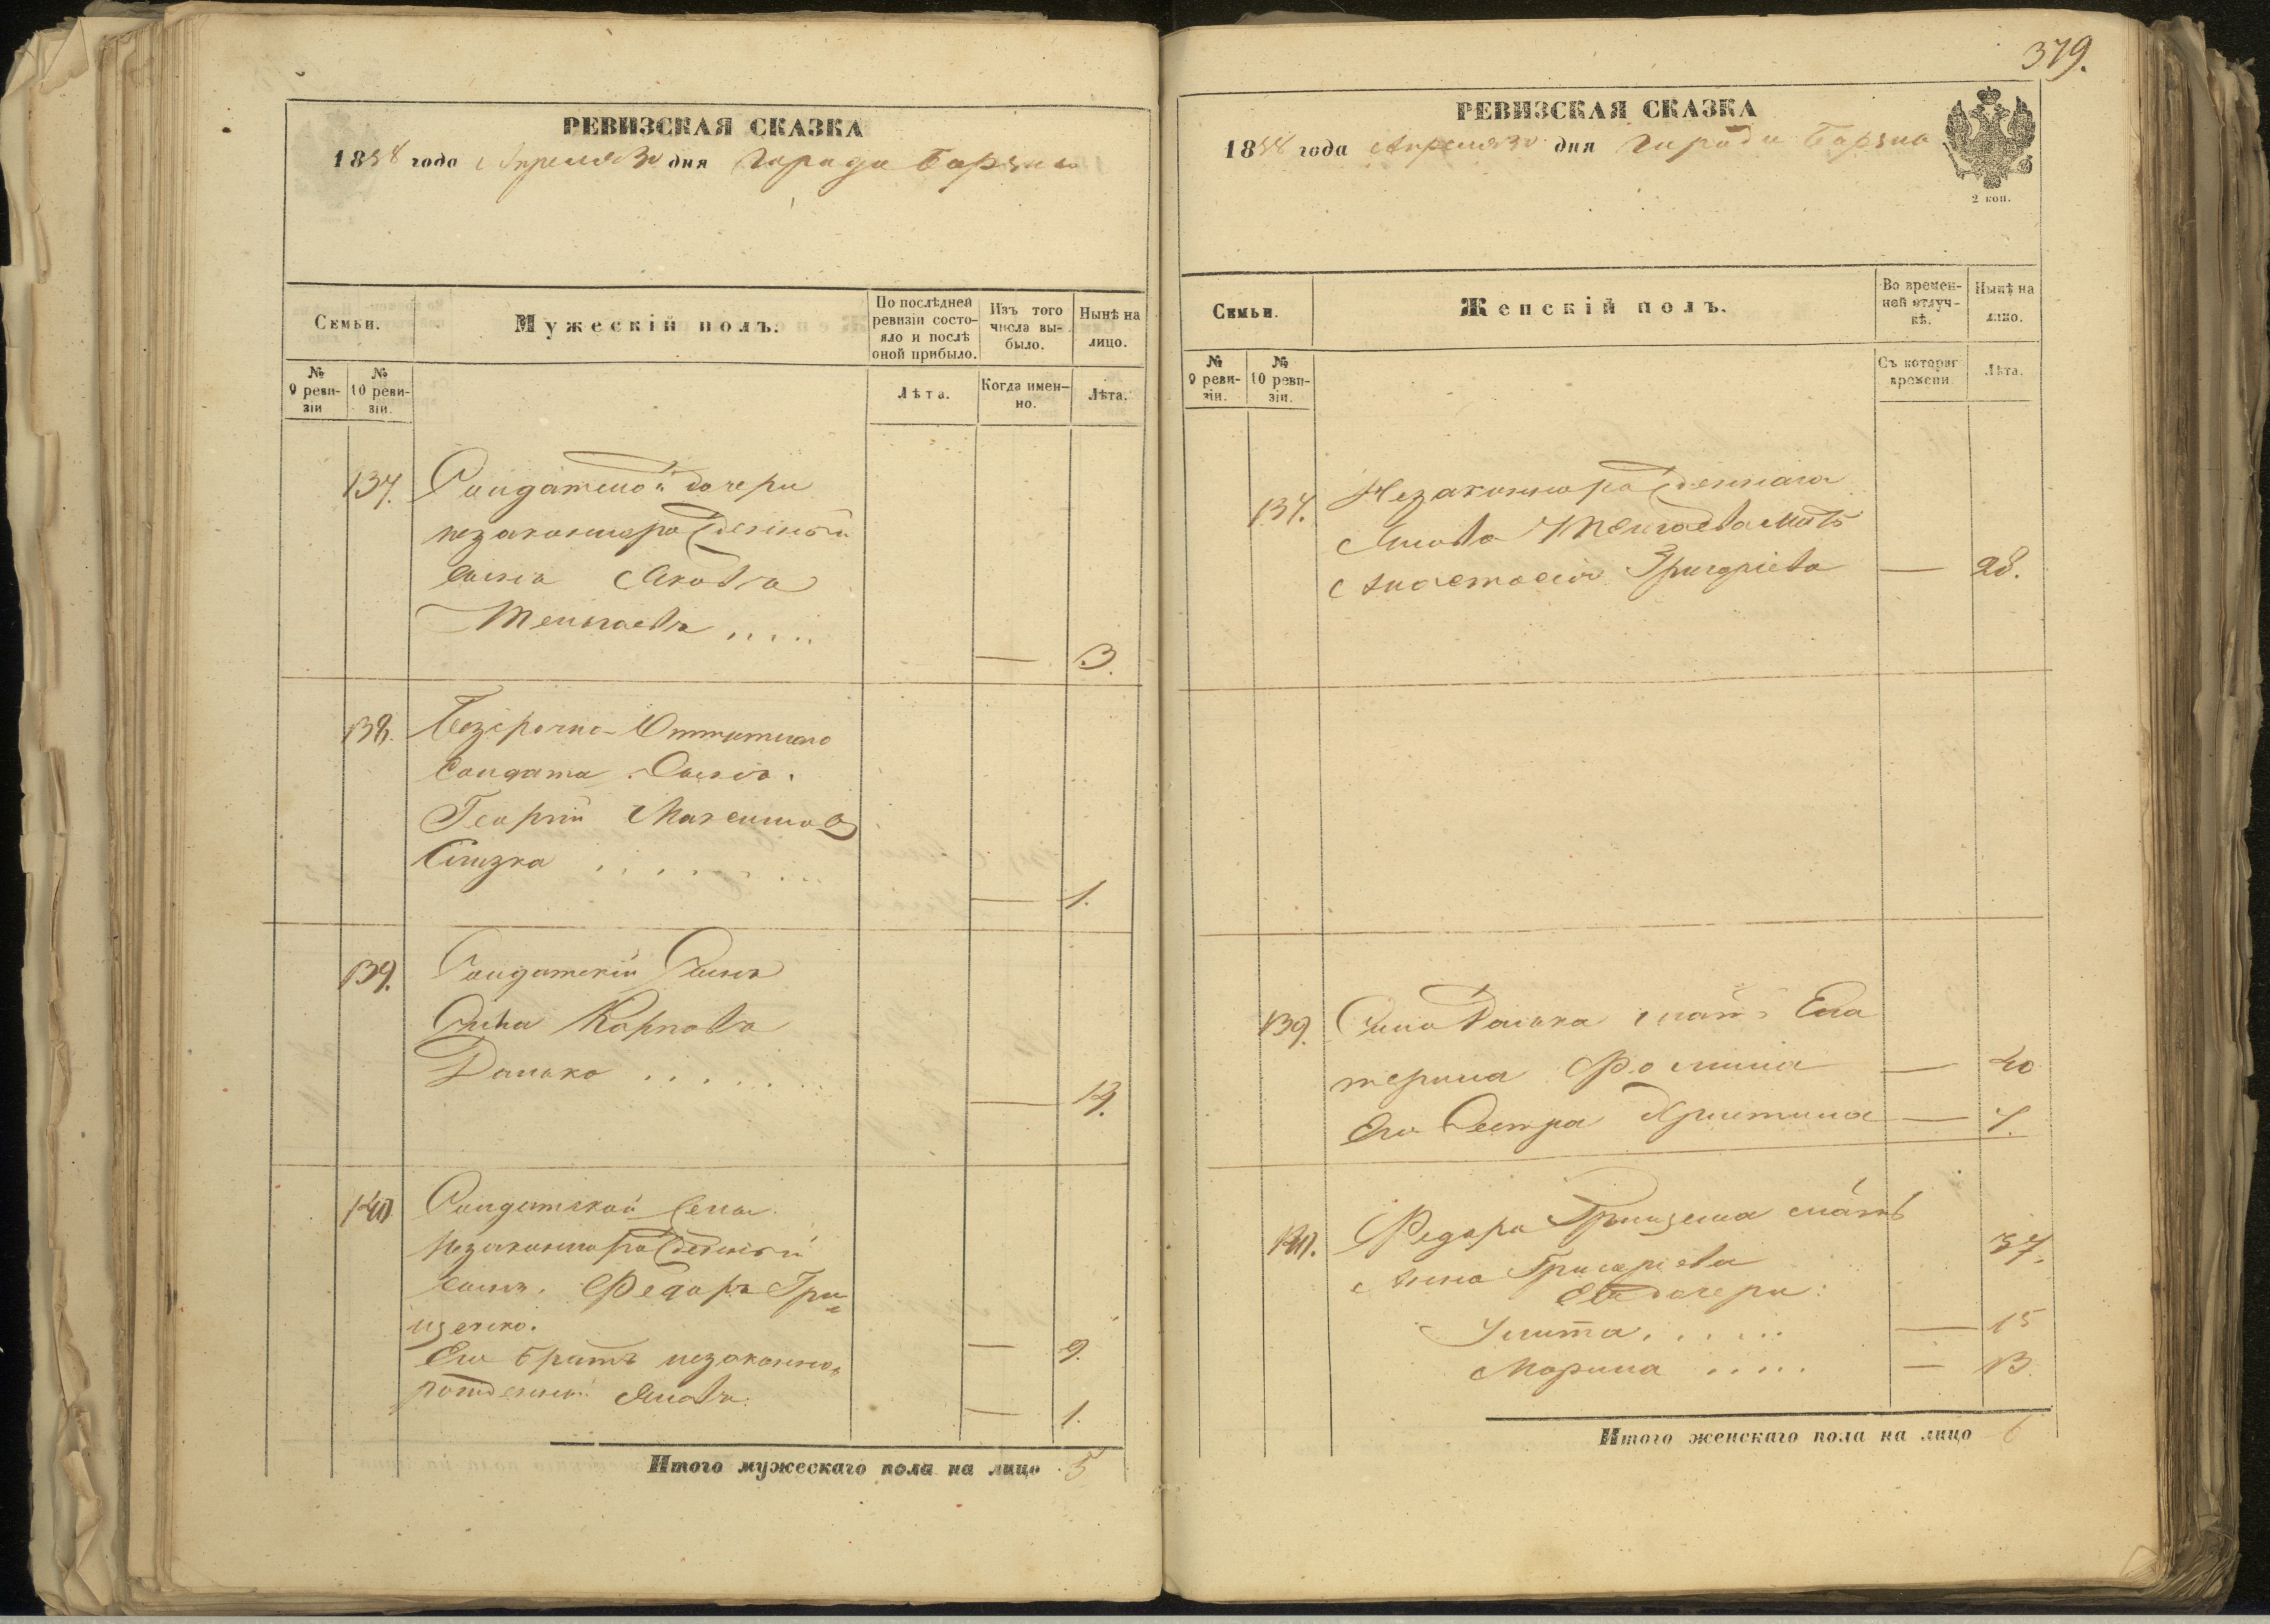 РЕВИЗСКАЯ СКАЗКА
1858 года Апреля 30 дня Города Борзны
Семьи.
Мужескій полъ.
По послѣдней ревизіи состояло и послѣ оной прибыло.
Изъ того числа выбыло.
Нынѣ на лицо.
№ 9 ревизіи
№ 10 ревизіи.
Лѣта.
Когда именно.
Лѣта.
137. Солдатской дочери
незаконнорожденный
сынъ Яковъ
3.
138. Безсрочно-Отпускного
Солдата Сынъ
Георгій Максимовъ
1.
139. Солдатскій Сынъ
Карповъ
Данько
14.
140 Солдатской
незаконнорожденный
сынъ Федоръ Гри-
ценко. 9.
Его братъ незаконно-
рожденный Яковъ 1.
Итого мужескаго пола на лицо 5
379.
РЕВИЗСКАЯ СКАЗКА
1858 года Апреля 30 дня Города Борзна
2 коп.
Семьи.
Женскій полъ.
Во временной отлучкѣ.
Нынѣ на лицо.
№ 9 ревизіи.
№ 10 ревизіи.
Съ котораго времени
Лѣта.
137. Незаконнорожденнаго
Якова мать
Анастасія Григоріева — 28.
139. Данька мать Ека
терина Фомина — 40
Его Сестра Христина — 7.
140. Федора Гриценка мать
Анна Григоріева 37.
Ея дочери:
Улита — 15
Марина — 13.
Итого женскаго пола на лицо 6